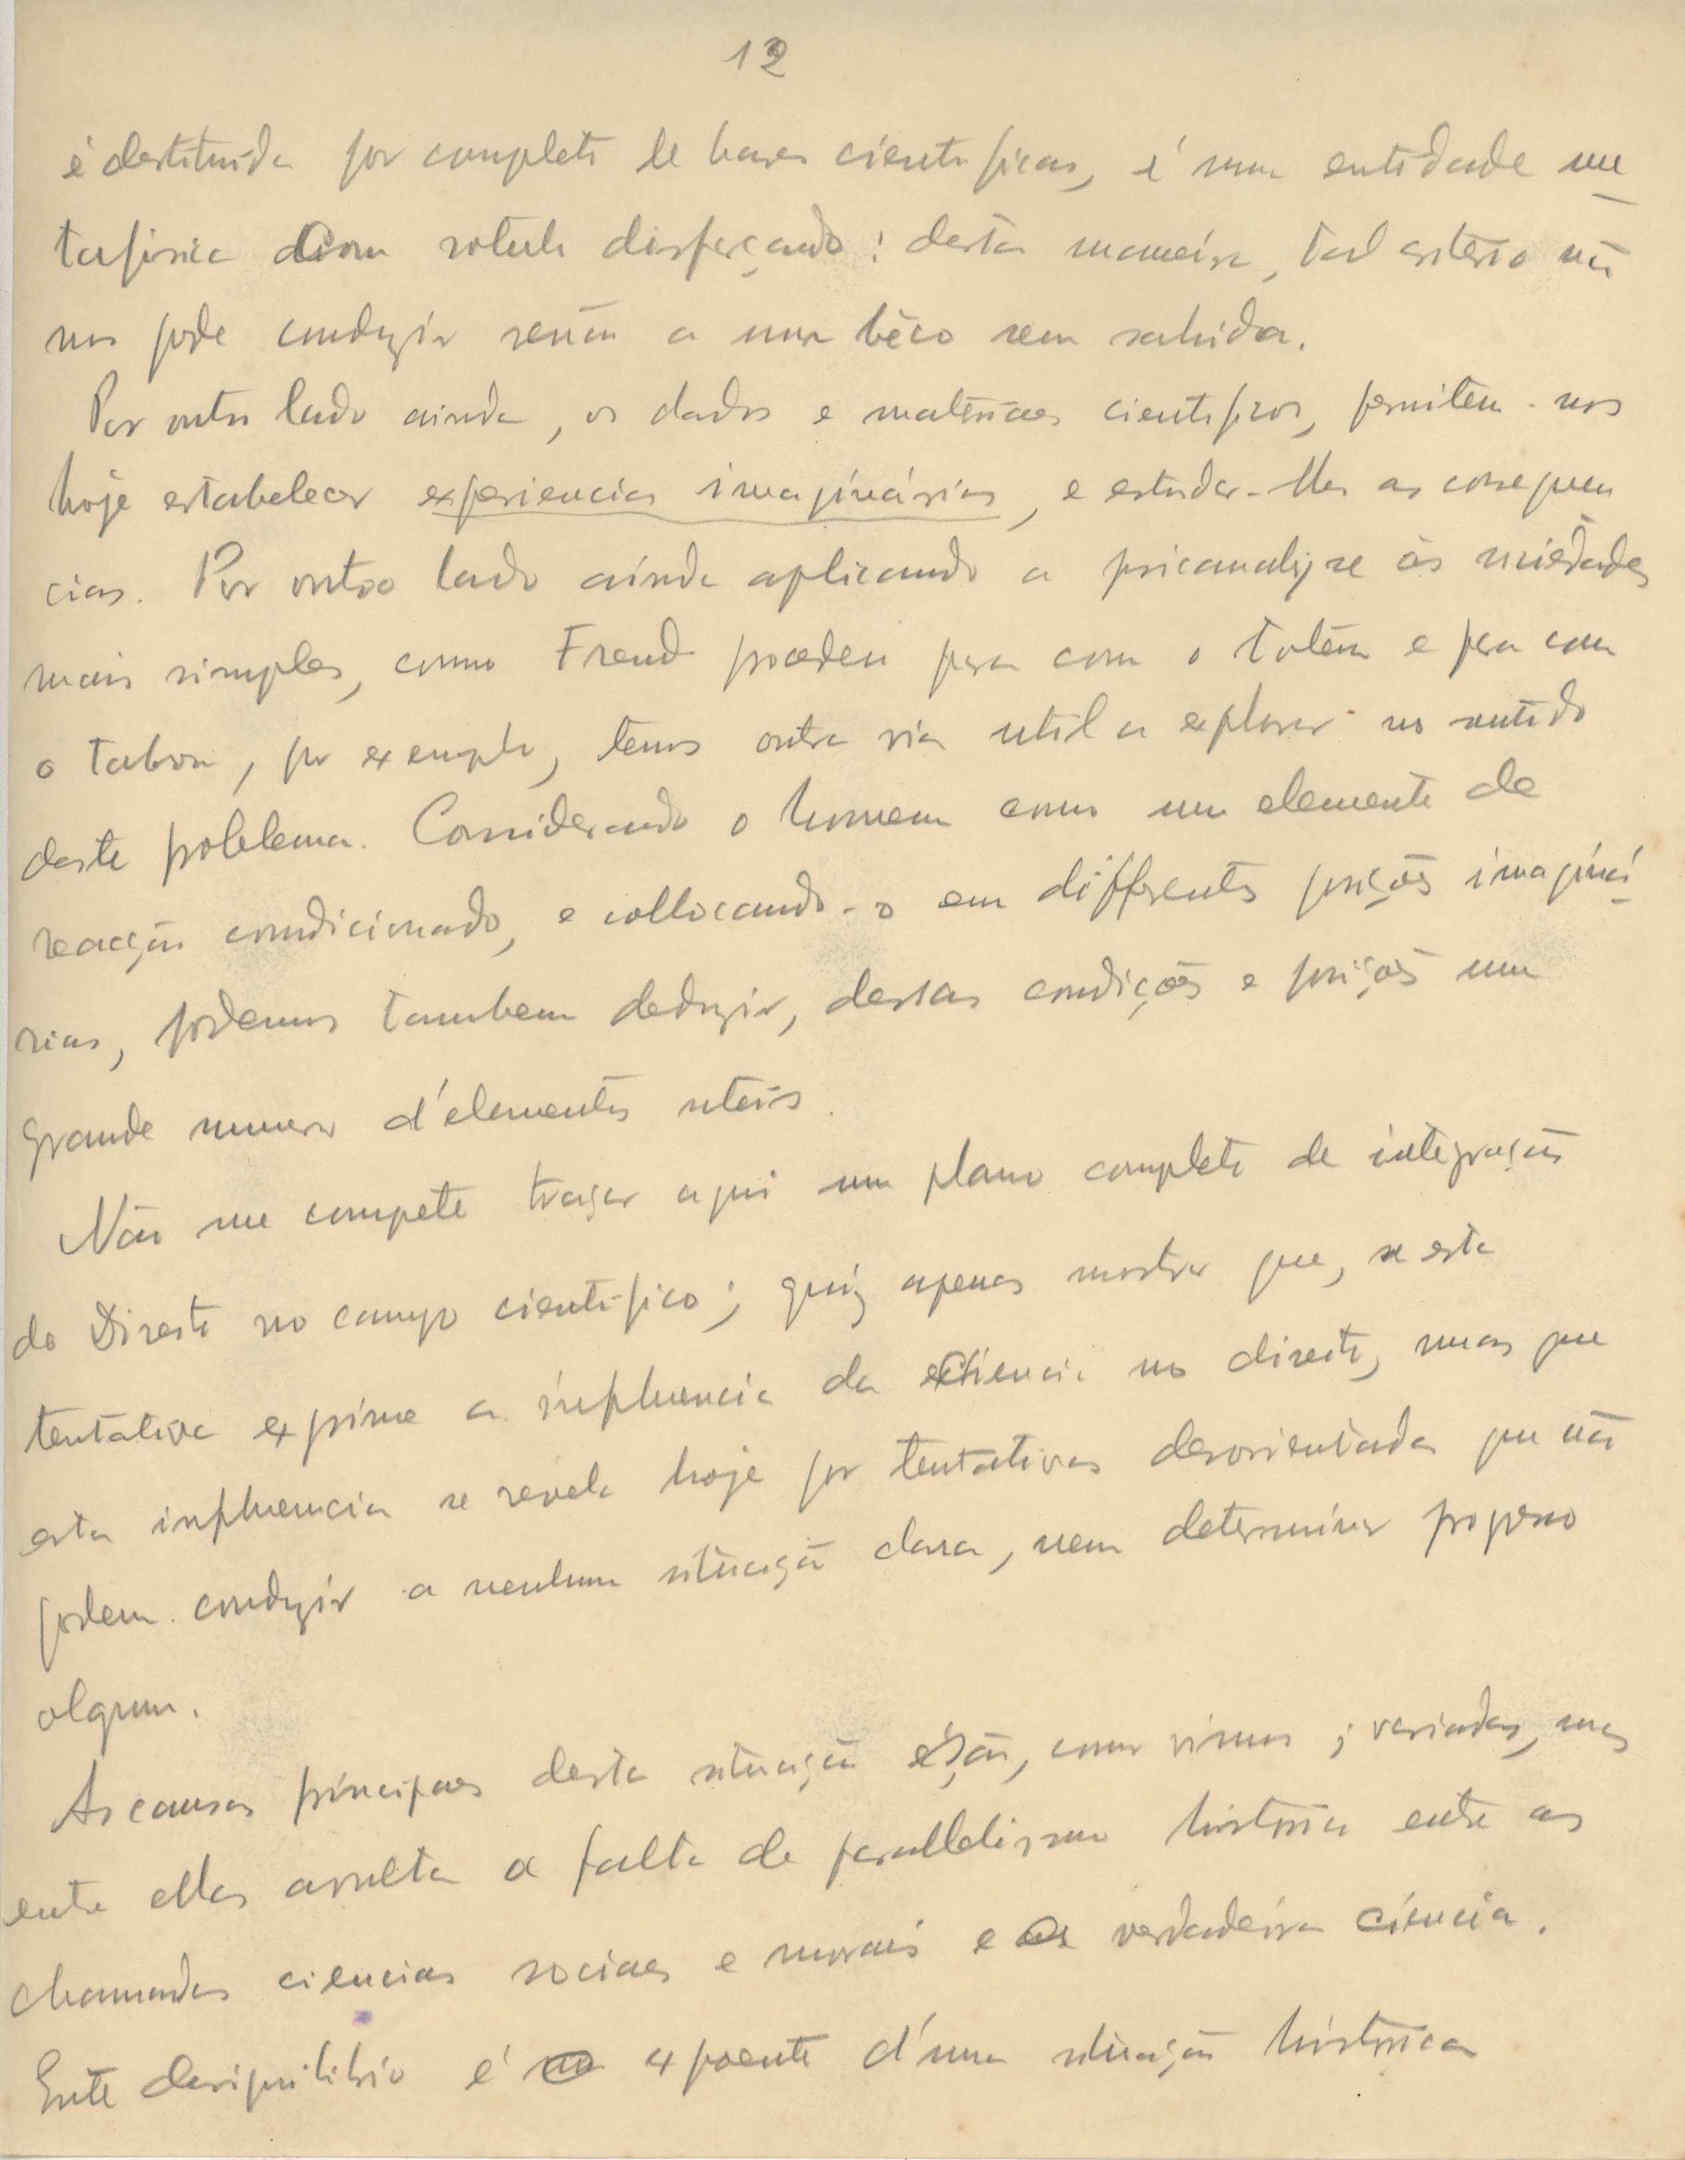 12
é destituida por completo de bases cientificas, é uma entidade me
tafisica com rotulo disfarçando: desta maneira, tal criterio não
nos pode conduzir senão a um bêco sem sahida.
Por outro lado ainda, os dados e materiaes cientificos, permitem-nos
hoje estabelecer experiencias imaginárias, e estudar-lhes as consequen
cias. Por outro lado ainda aplicando a psicanalyse ás sociedades
mais simples, como Freud procedeu para com o totém e para com
o tabou, por exemplo, temos outra via util a explorar no sentido
deste problema. Considerando o homem como um elemento de
reacção condicionado, e collocando-o em differentes posições imaginá
rias, podemos tambem deduzir, dessas condições e posições um
grande numero d'elementos uteis.
Não me compete traçar aqui um plano completo de integração
do Direito no campo cientifico; quiz apenas mostrar que, se esta
tentativa exprime a influencia da ciencia no direito, mas que
esta influencia se revela hoje por tentativas desorientadas que não
podem conduzir a nenhuma situação clara, nem determinar progresso
algum.
As causas principaes desta situação são, como vimos; variadas, mas
entre ellas avulta a falta de parallelismo historico entre as
chamadas ciencias sociaes e morais e a verdadeira ciencia.
Este desiquilibrio é expoente d'uma situação historica